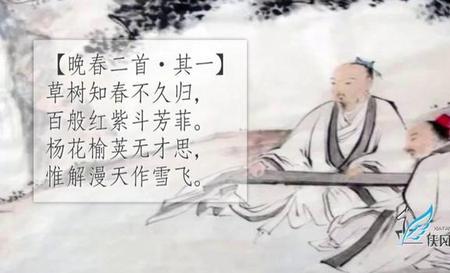 【晚春二首·其一】
草树知春不久归，
百般红紫斗芳菲。
杨花榆荚无才思，
惟解漫天作雪飞。